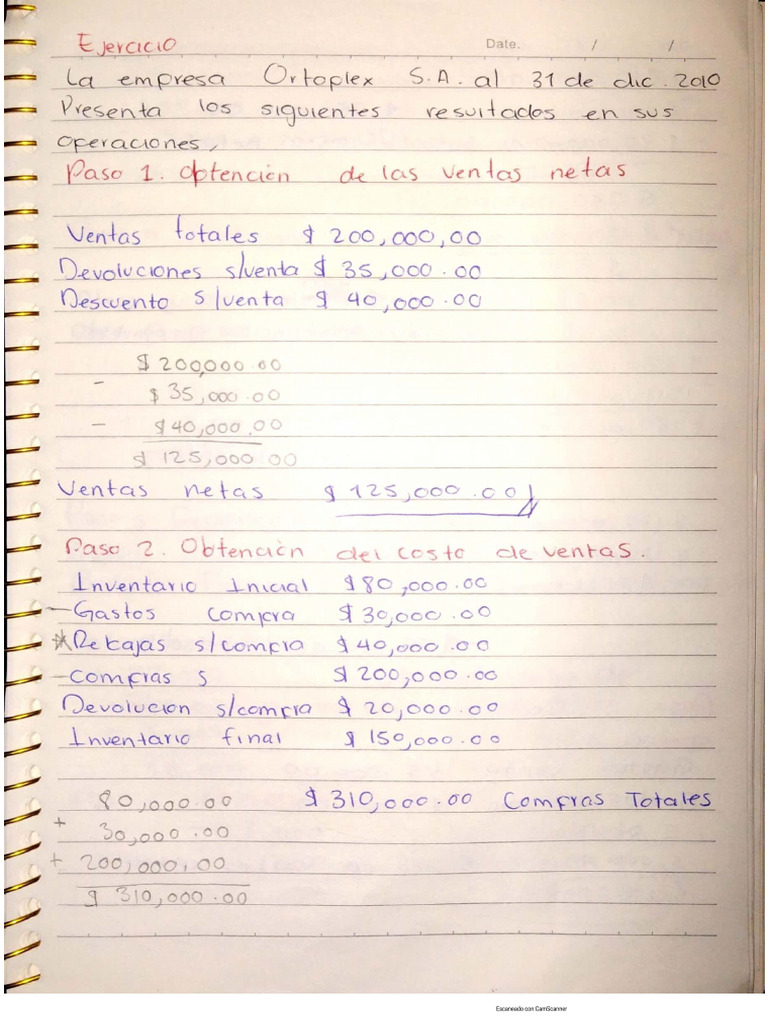 Ejercicio Date. / /
La empresa Ortoplex S.A. al 31 de dic. 2010
Presenta los siguientes resultados en sus
operaciones,
Paso 1. Obtención de las ventas netas
Ventas totales $ 200,000,00
Devoluciones s/venta $ 35,000.00
Descuento s/venta $ 40,000.00
$ 200,000.00
- $ 35,000.00
- $ 40,000.00
$ 125,000.00
Ventas netas $ 125,000.00
Paso 2. Obtención del costo de ventas.
Inventario Inicial $80,000.00
- Gastos compra $30,000.00
* Rebajas s/compra $40,000.00
- Compras S $ 200,000.00
Devolucion s/compra $ 20,000.00
Inventario final $ 150,000.00
80,000.00 $ 310,000.00 Compras Totales
+ 30,000.00
+ 200,000,00
$ 310,000.00
Escaneado con CamScanner